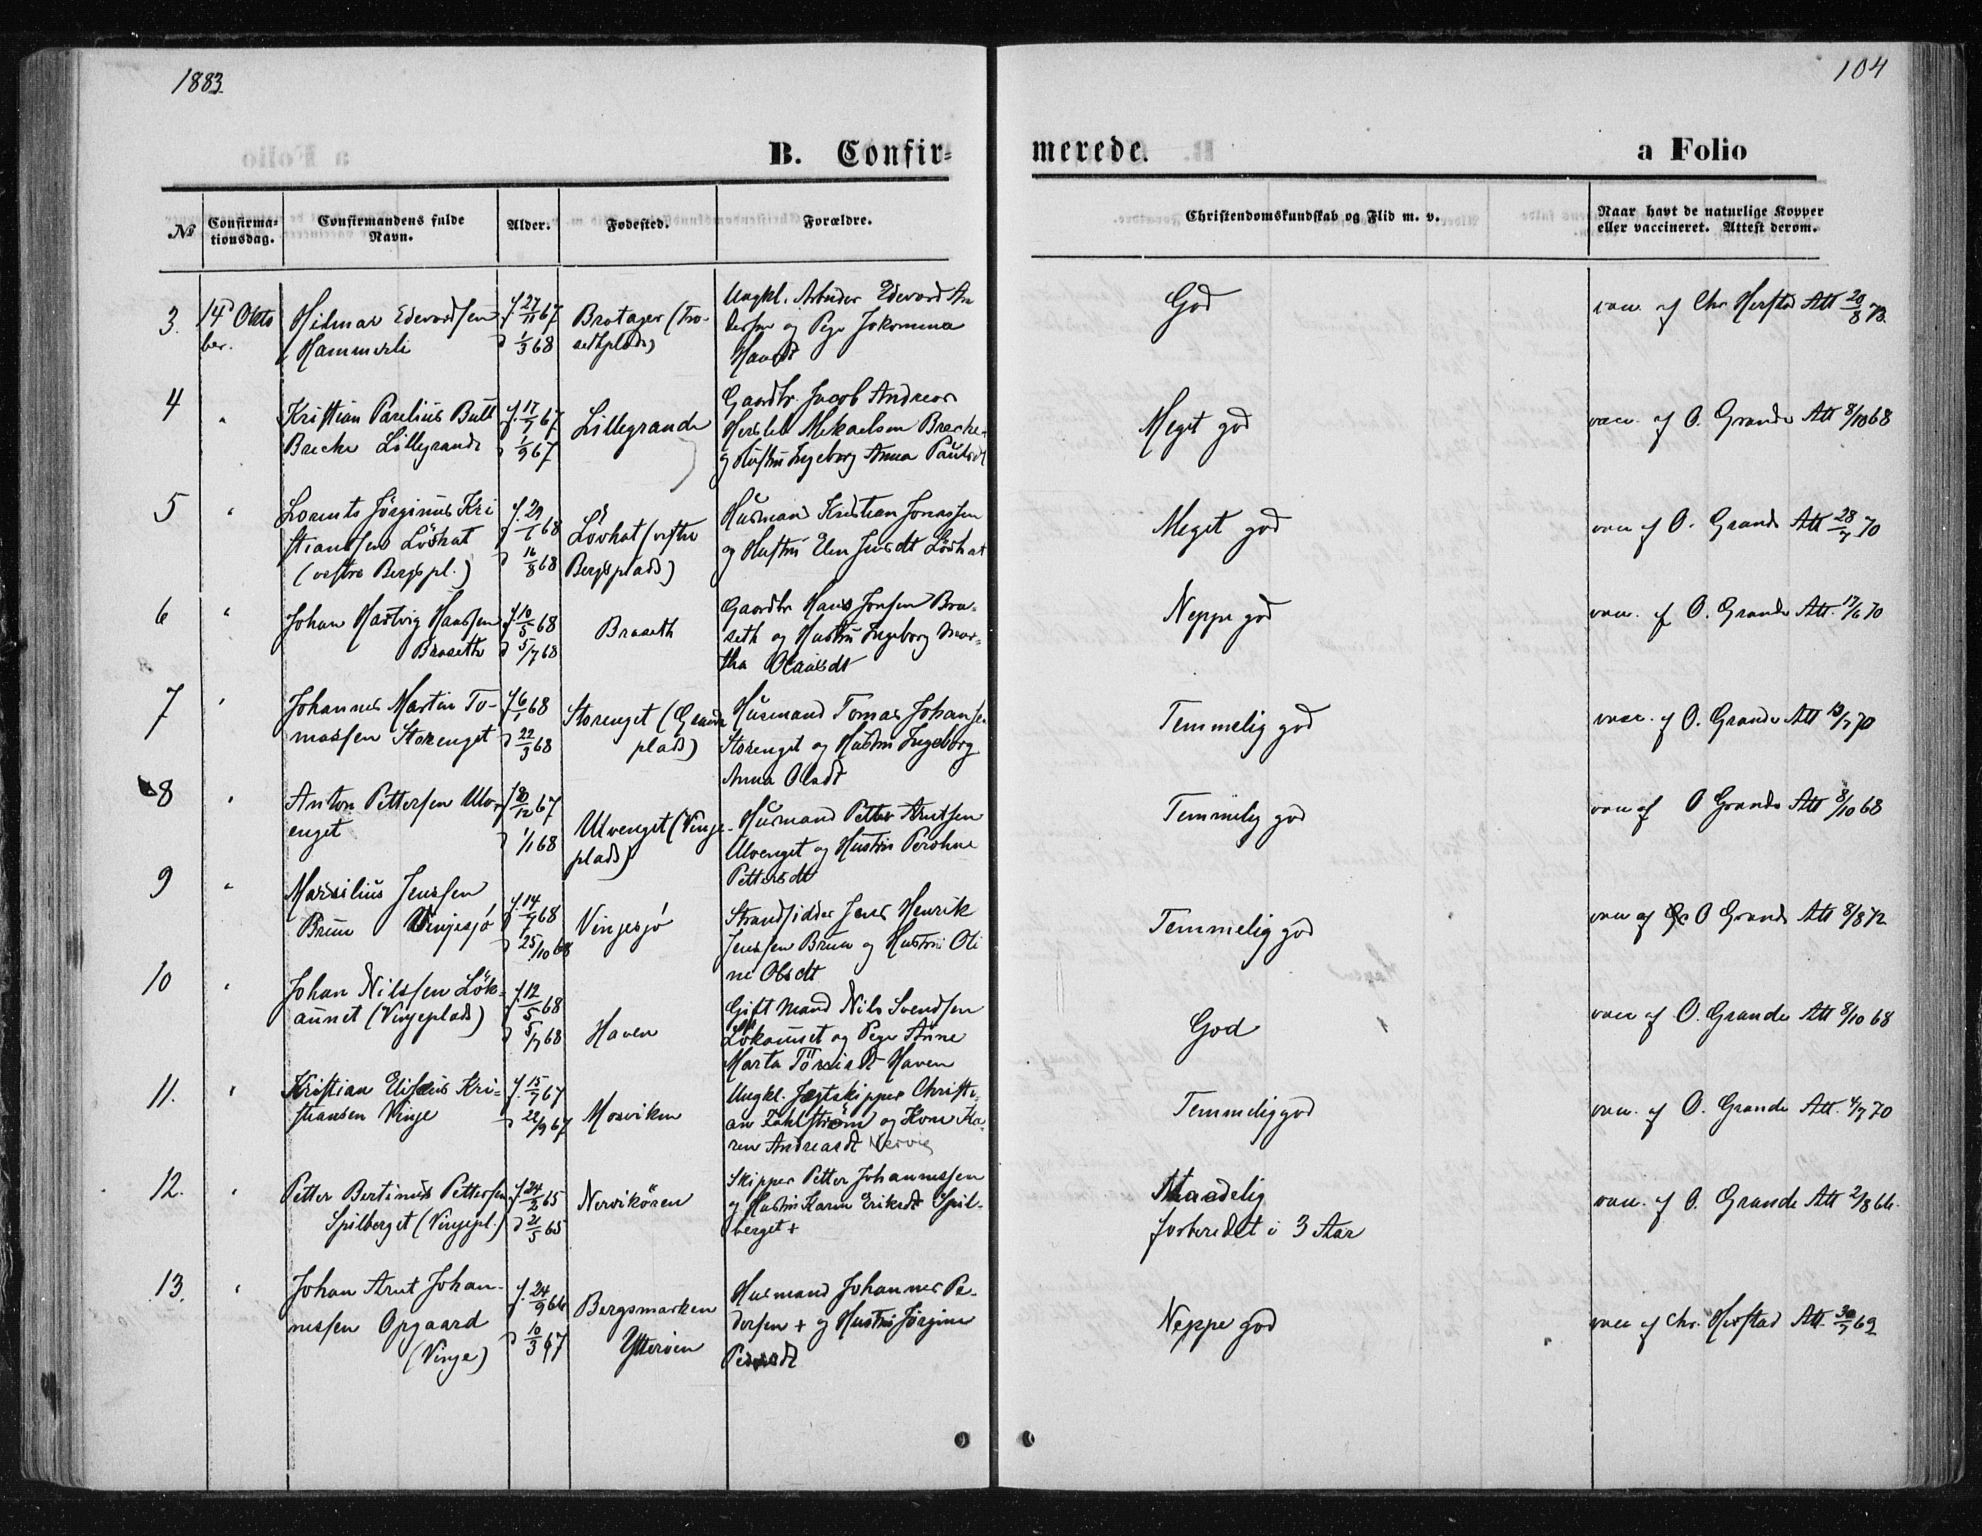 1883.
104
B. Confir-
merede.
a Folio
No
Confirma-
tionsdag.
Confirmandens fulde
Navn.
Alder.
Fødested.
Forældre.
Christendomskundskab og Flid m. v.
Naar havt de naturlige Kopper
eller vaccineret. Attest derom.
3.
14 Okto
ber.
Hilmar Edevardsen
Hammerli
f. 27/11 67
d 1/3 68
Brotager (Tro-
sethplads)
Ungkl. Arbeider Edevard An
dersen og Pege Jakomina
God
vac. af Chr. Herstad Att 20/8 73.
4
"
Kristian Parelius Bull
Brecke Lillegrande
f. 17/7 67
d 1/9 67
Lillegrande
Gaardbr. Jacob Andreas
Hersleb Mikaelsen Brecke
og Hustru Ingeborg Anna Paulsdt
Meget god
vacc. af O. Grande Att 8/10 68
5
"
Lorents Jørginus Kri
stiansen Lövhat
(vestre Bergspl.)
f. 29/1 68
d 16/8 68
Lövhat (vestre
Bergsplads)
Husmand Kristian Jonassen
og Hustru Elen Jensdt Lövhat
Meget god
vac af O. Grande Att 28/7 70
6
"
Johan Hartvig Hansen
Braseth
f. 10/5 68
d 5/7 68
Braseth
Gaardbr Hans Jonsen Bra-
seth og Hustru Ingeborg Mar-
tha Olausdt
Neppe god
vac. af O. Grande Att. 17/6 70
7
"
Johannes Martin To-
massen Storenget
f. 6/1 68
d 22/3 68
Storenget (Grande
plads)
Husmand Tomas Johansen
Storenget og Hustru Ingeborg
Anna Olsdt
Temmelig god
vac. af O. Grande Att 13/7 70
8
"
Anton Pettersen Ulv
enget
f. 10/12 67
d 1/1 68
Ulvenget (Vinje-
plads)
Husmand Petter Arntsen
Ulvenget og Hustru Perohne
Pettersdt
Temmelig god
vac af O Grande Att 8/10 68
9
"
Marsilius Jenssen
Bruun Vinjesjö
f. 14/9 68
d 25/10 68
Vinjesjö
Strandsidder Jens Henrik
Jenssen Bruun og Hustru Oli
ne Olsdt
Temmelig god
vac af O Grande Att 8/8 72
10
"
Johan Nilssen Lök-
aunet (Vinjeplads)
f. 12/5 68
d 5/7 68
Haven
Gift Mand Nils Svendsen
Lökaunet og Pege Anne
Marta Tönnisdt Haven
God
vac af O. Grande Att 8/10 68
11.
"
Kristian Elisæus Kri-
stiansen Vinge
f. 15/7 67
d 22/9 67
Mosviken
Ungkl. Jægtskipper Christi-
an Fahlström og Kone Ka-
ren Andreasdt Nervig
Temmelig god
vac. af O. Grande Att. 4/7 70
12.
"
Petter Bertinus Pettersen
Spilberget (Vinjepl.)
f. 24/2 65
d 21/5 65
Nervikören
Skipper Petter Johannessen
og Hustru Karen Eriksdt Spil-
berget +
Maadelig
forberedet i 3 Aar
vac. af O. Grande Att 2/8 66.
13.
"
Johan Arnt Johan-
nessen Opgaard
(Vinje)
f. 24/9 66
d 10/3 67
Bergsmarken
Ytterøen
Husmand Johannes Pe-
dersen + og Hustru Jörgine
Pedersdt
Neppe god
vac af Chr. Herstad Att. 30/7 69